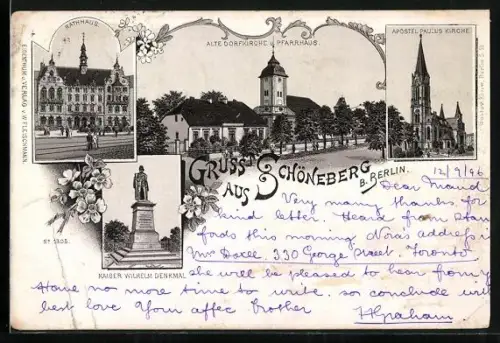 RATHHAUS.
ALTE DORFKIRCHE U. PFARRHAUS.
APOSTEL PAULUS KIRCHE
EIGENTHUM U. VERLAG V. W. FLEISCHMANN.
GRUSS AUS SCHÖNEBERG
B. BERLIN.
KAISER WILHELM DENKMAL
12/9/96
Dear Maud
Very many thanks for
kind letter. Heard from Stan
fords this morning Nora's address is
Mrs 330 George Street. Toronto
she will be pleased to hear from y
Have no more time to write. so conclude with
best love Your affec brother
HGraham.